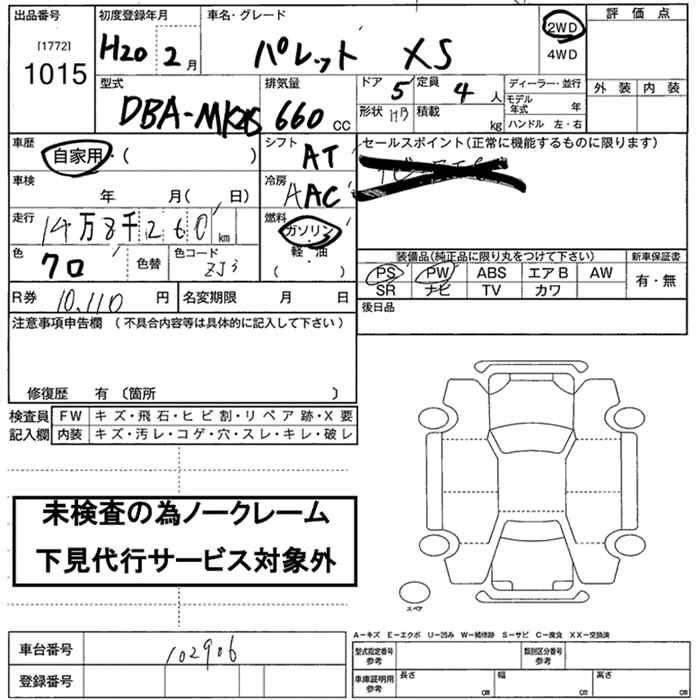 出品番号 初度登録年月 車名・グレード 評価点
[1772]
1015 H20 2月 パレット XS 2WD 4WD
外装 内装
型式 排気量 ドア 定員 ディーラー・並行
DBA-MK21S 660 CC 5 4人 モデル年式 年
形状 HB 積載 kg ハンドル 左・右
車歴 シフト セールスポイント(正常に機能するものに限ります)
自家用・( ) AT
車検 冷房
年 月( 日) AAC
走行 燃料
14万8千260km ガソリン・
軽・油
( )
色 色替 色コード 装備品(純正品に限り丸をつけて下さい) 新車保証書
クロ ZJ3 PS PW ABS エアB AW 有・無
SR ナビ TV カワ
R券 10,110円 名変期限 月 日 後日品
注意事項申告欄 (不具合内容等は具体的に記入して下さい)
修復歴 有 〔箇所 〕
検査員 FW キズ・飛石・ヒビ割・リペア跡・X要
記入欄 内装 キズ・汚レ・コゲ・穴・スレ・キレ・破レ
未検査の為ノークレーム
下見代行サービス対象外
スペア
A−キズ E−エクボ U−凹み W−補修跡 S−サビ C−腐食 XX−交換済
車台番号 102906 型式指定番号 参考 類別区分番号 参考
登録番号 車庫証明用 参考 長さ cm 幅 cm 高さ cm